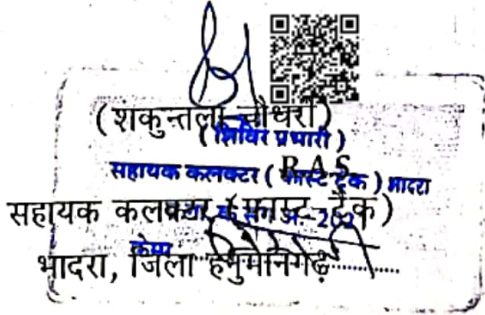 (शकुन्तला चौधरी)
(शिविर प्रभारी)
R.A.S.
सहायक कलक्टर (फास्ट ट्रेक) भादरा
सहायक कलक्टर (फास्ट ट्रेक)
कैम्प
भादरा, जिला हनुमानगढ़